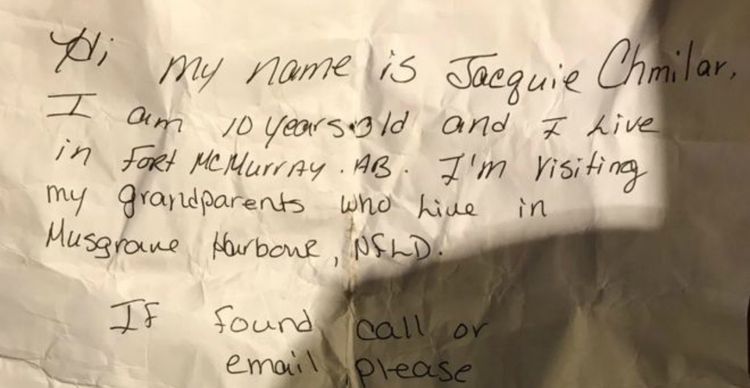 Hi my name is Jacquie Chmilar,
I am 10 years old and I Live
in FORT McMurray. AB. I'm Visiting
my grandparents who live in
Musgrave Harbour, NFLD.
If found call or
email please